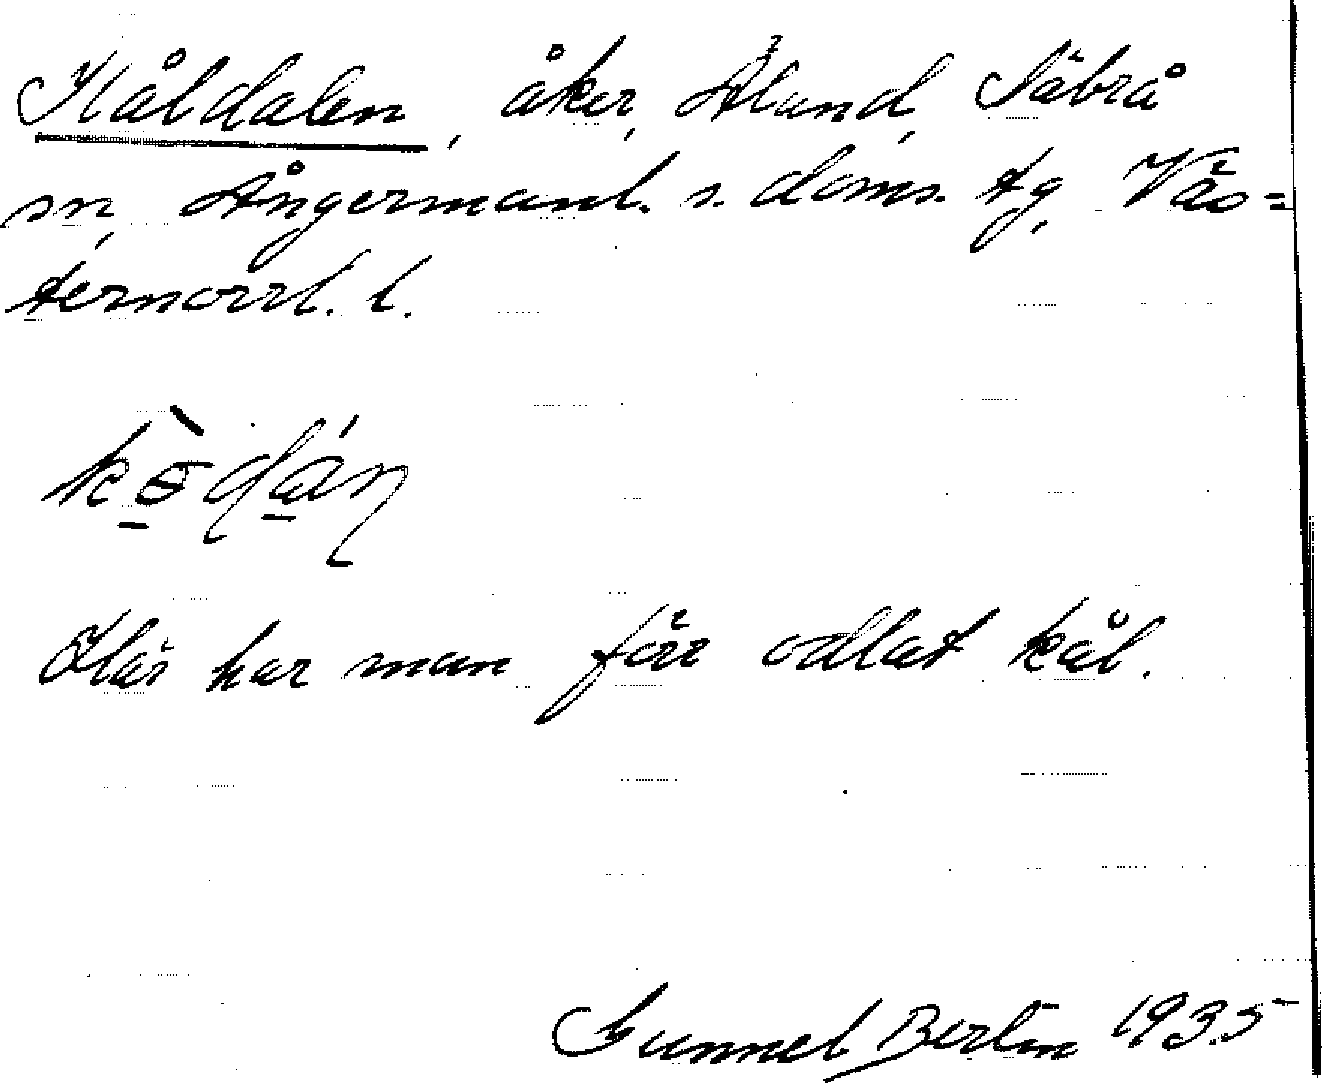 Kåldalen, åker, Ålund, Säbrå
sn, Ångermanl. s. doms. tg, Väs=
ternorrl. l.
Här har man förr odlat kål.
Gunnel Berlin 1935